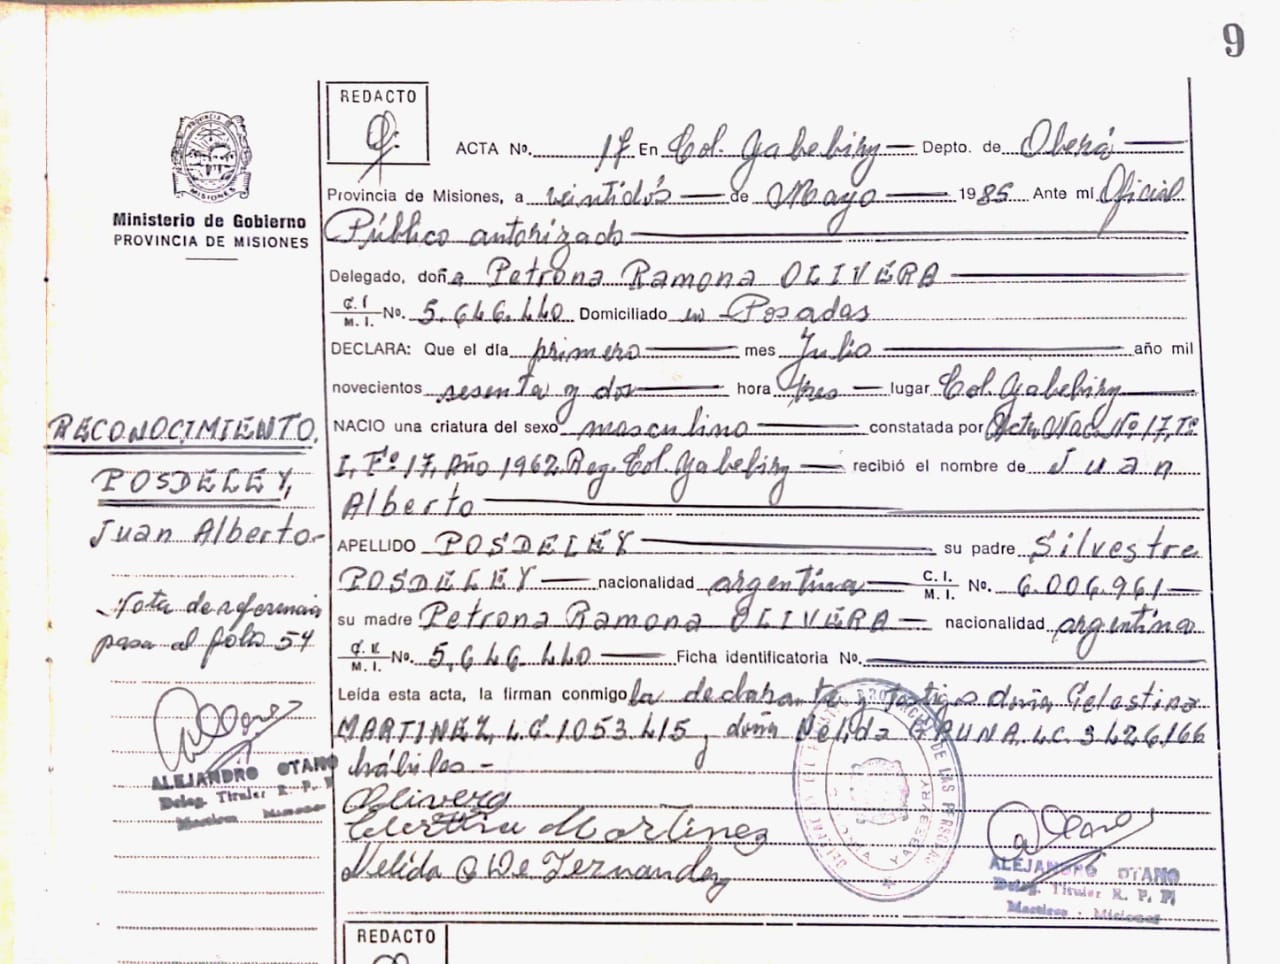 9
REDACTO
ACTA No. 17 En Col. Gobebiry Depto. de Oberá
PROVINCIA DE
MISIONES
Ministerio de Gobierno
PROVINCIA DE MISIONES
Provincia de Misiones, a veintidós de Mayo 1985 Ante mi Oficial
Público autorizado
Delegado, doña Petrona Ramona OLIVERA
C. I. M. I. No. 5.646.440 Domiciliado en Posadas
DECLARA: Que el día primero mes Julio año mil
novecientos sesenta y dos hora tres lugar Col. Gobebiry
NACIO una criatura del sexo masculino constatada por Acta Nac. Nº 17, Tº
I, Fº 17, Año 1962 Reg. Col. Gobebiry recibió el nombre de Juan
Alberto
APELLIDO POSDELEY su padre Silvestre
POSDELEY nacionalidad argentina C. I. M. I. No. 6.006.961
su madre Petrona Ramona OLIVERA nacionalidad argentina
M. I. No. 5.646.440 Ficha identificatoria No.
Leída esta acta, la firman conmigo la declarante y testigos doña Celestina
MARTINEZ, L.C. 1053.415, doña Nélida L.C. 3426.166
hábiles -
Olivera
Martinez
Nelida G De Fernandez
RECONOCIMIENTO.
POSDELEY,
Juan Alberto-
Nota de referencia
pasa al folio 54
ALEJANDRO OTANO
Deleg. Titular R. P. P.
Martires - Misiones
ALEJANDRO OTANO
Deleg. Titular R. P. P.
Martires - Misiones
REDACTO